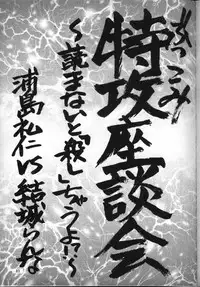 特攻座談会
ぶっこみ
~読まないと「殺し」ちゃうよ!?~
浦島礼仁VS結城らんな